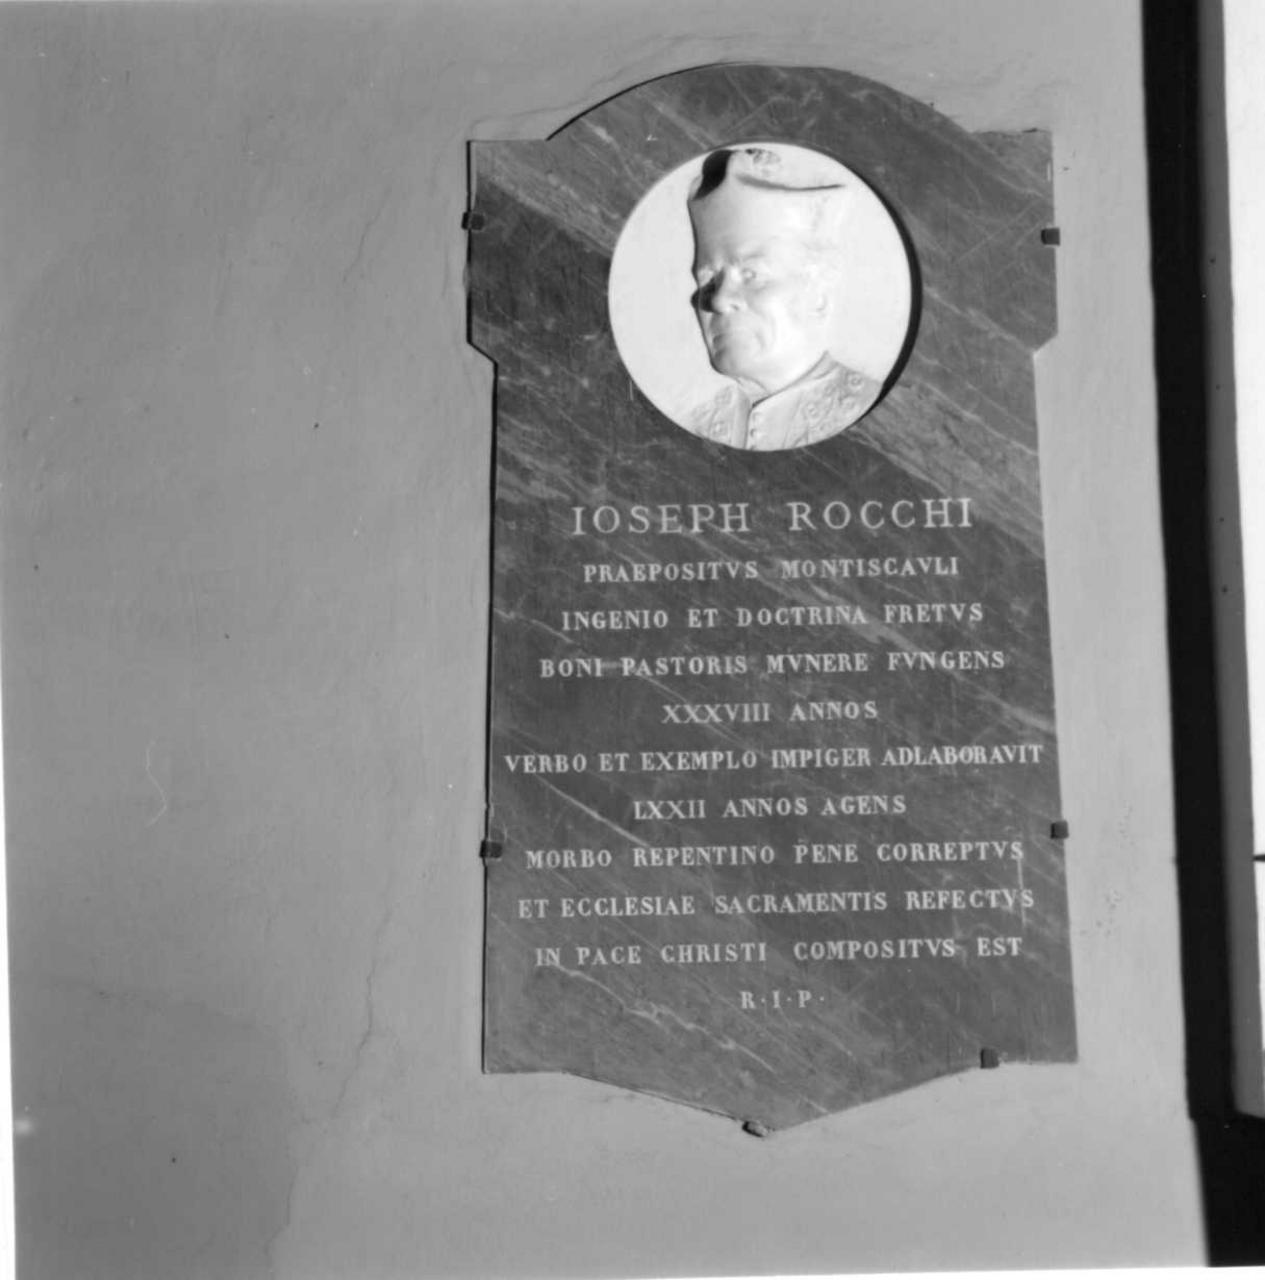 IOSEPH ROCCHI
PRAEPOSITVS MONTISCAVLI
INGENIO ET DOCTRINA FRETVS
BONI PASTORIS MVNERE FVNGENS
XXXVIII ANNOS
VERBO ET EXEMPLO IMPIGER ADLABORAVIT
LXXII ANNOS AGENS
MORBO REPENTINO PENE CORREPTVS
ET ECCLESIAE SACRAMENTIS REFECTVS
IN PACE CHRISTI COMPOSITVS EST
R·I·P·